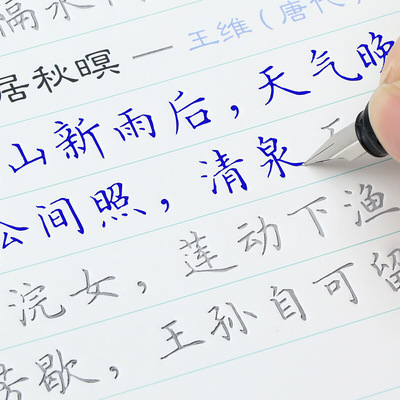 隔水
居秋暝 — 王维（唐代
山新雨后，天气晚
间照，清泉石
浣女，莲动下渔
芳歇，王孙自可留